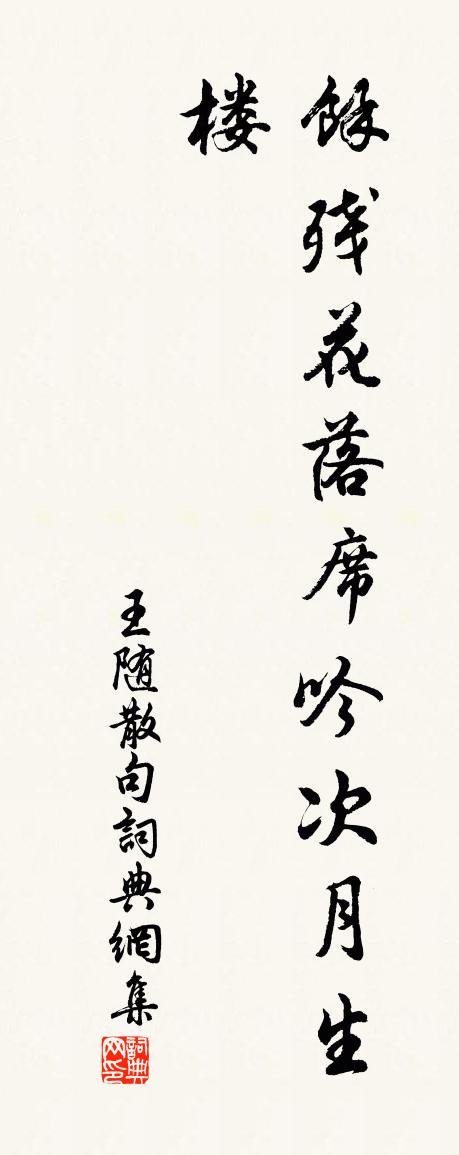 餘残花落席吟次月生
楼
王随散句詞典網集
詞典
网印